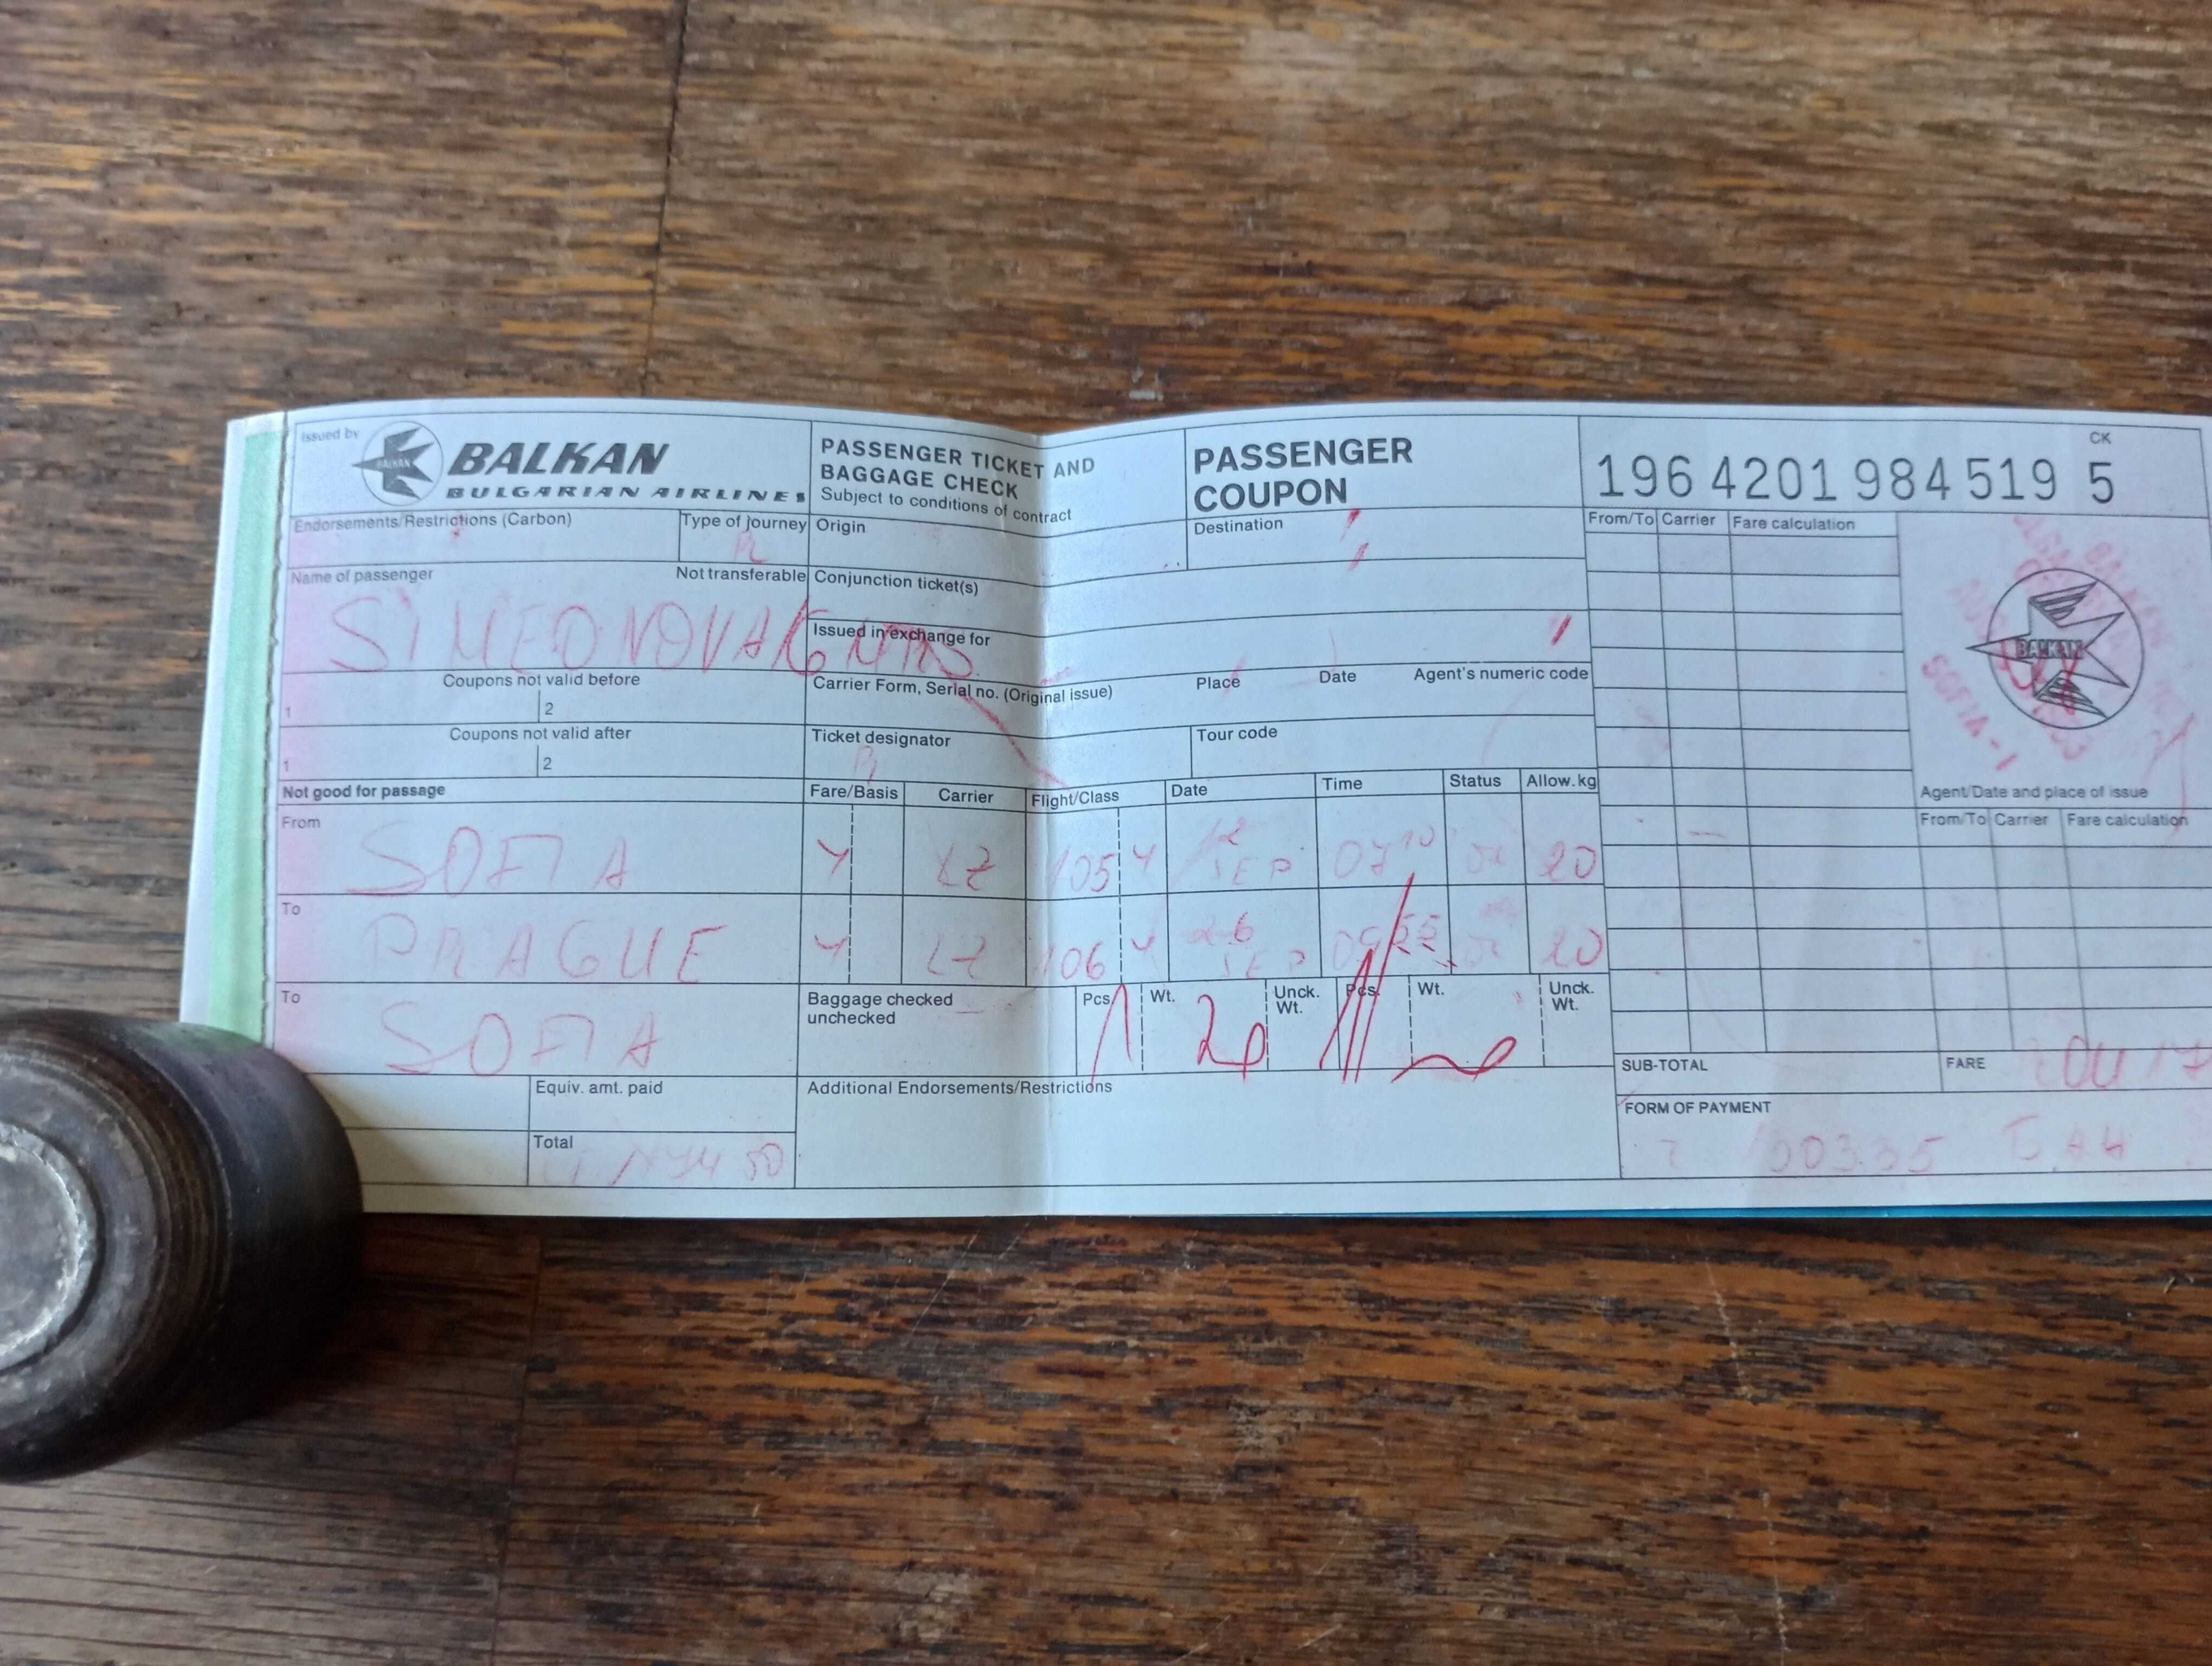 Issued by
BALKAN
BALKAN
BULGARIAN AIRLINES
PASSENGER TICKET AND
BAGGAGE CHECK
Subject to conditions of contract
PASSENGER
COUPON
CK
196 4201 984 519 5
Endorsements/Restrictions (Carbon)
Type of Journey
Origin
Destination
From/To Carrier Fare calculation
Name of passenger
Not transferable
Conjunction ticket(s)
SIMEONOVA
MRS
Issued in exchange for
Coupons not valid before
1 2
Carrier Form, Serial no. (Original issue)
Place Date Agent's numeric code
BALKAN
SOFIA - 1
Coupons not valid after
1 2
Ticket designator
Tour code
Agent/Date and place of issue
Not good for passage
Fare/Basis Carrier Flight/Class Date Time Status Allow. kg
From/To Carrier Fare calculation
From
SOFIA Y LZ 105 Y 12 SEP 07 10 OK 20
To
PRAGUE Y LZ 106 Y 26 SEP 20
To
SOFIA
Baggage checked
unchecked
Pcs. Wt. Unck. Wt. Pcs. Wt. Unck. Wt.
1 20
SUB-TOTAL
FARE
Equiv. amt. paid
Additional Endorsements/Restrictions
FORM OF PAYMENT
Total